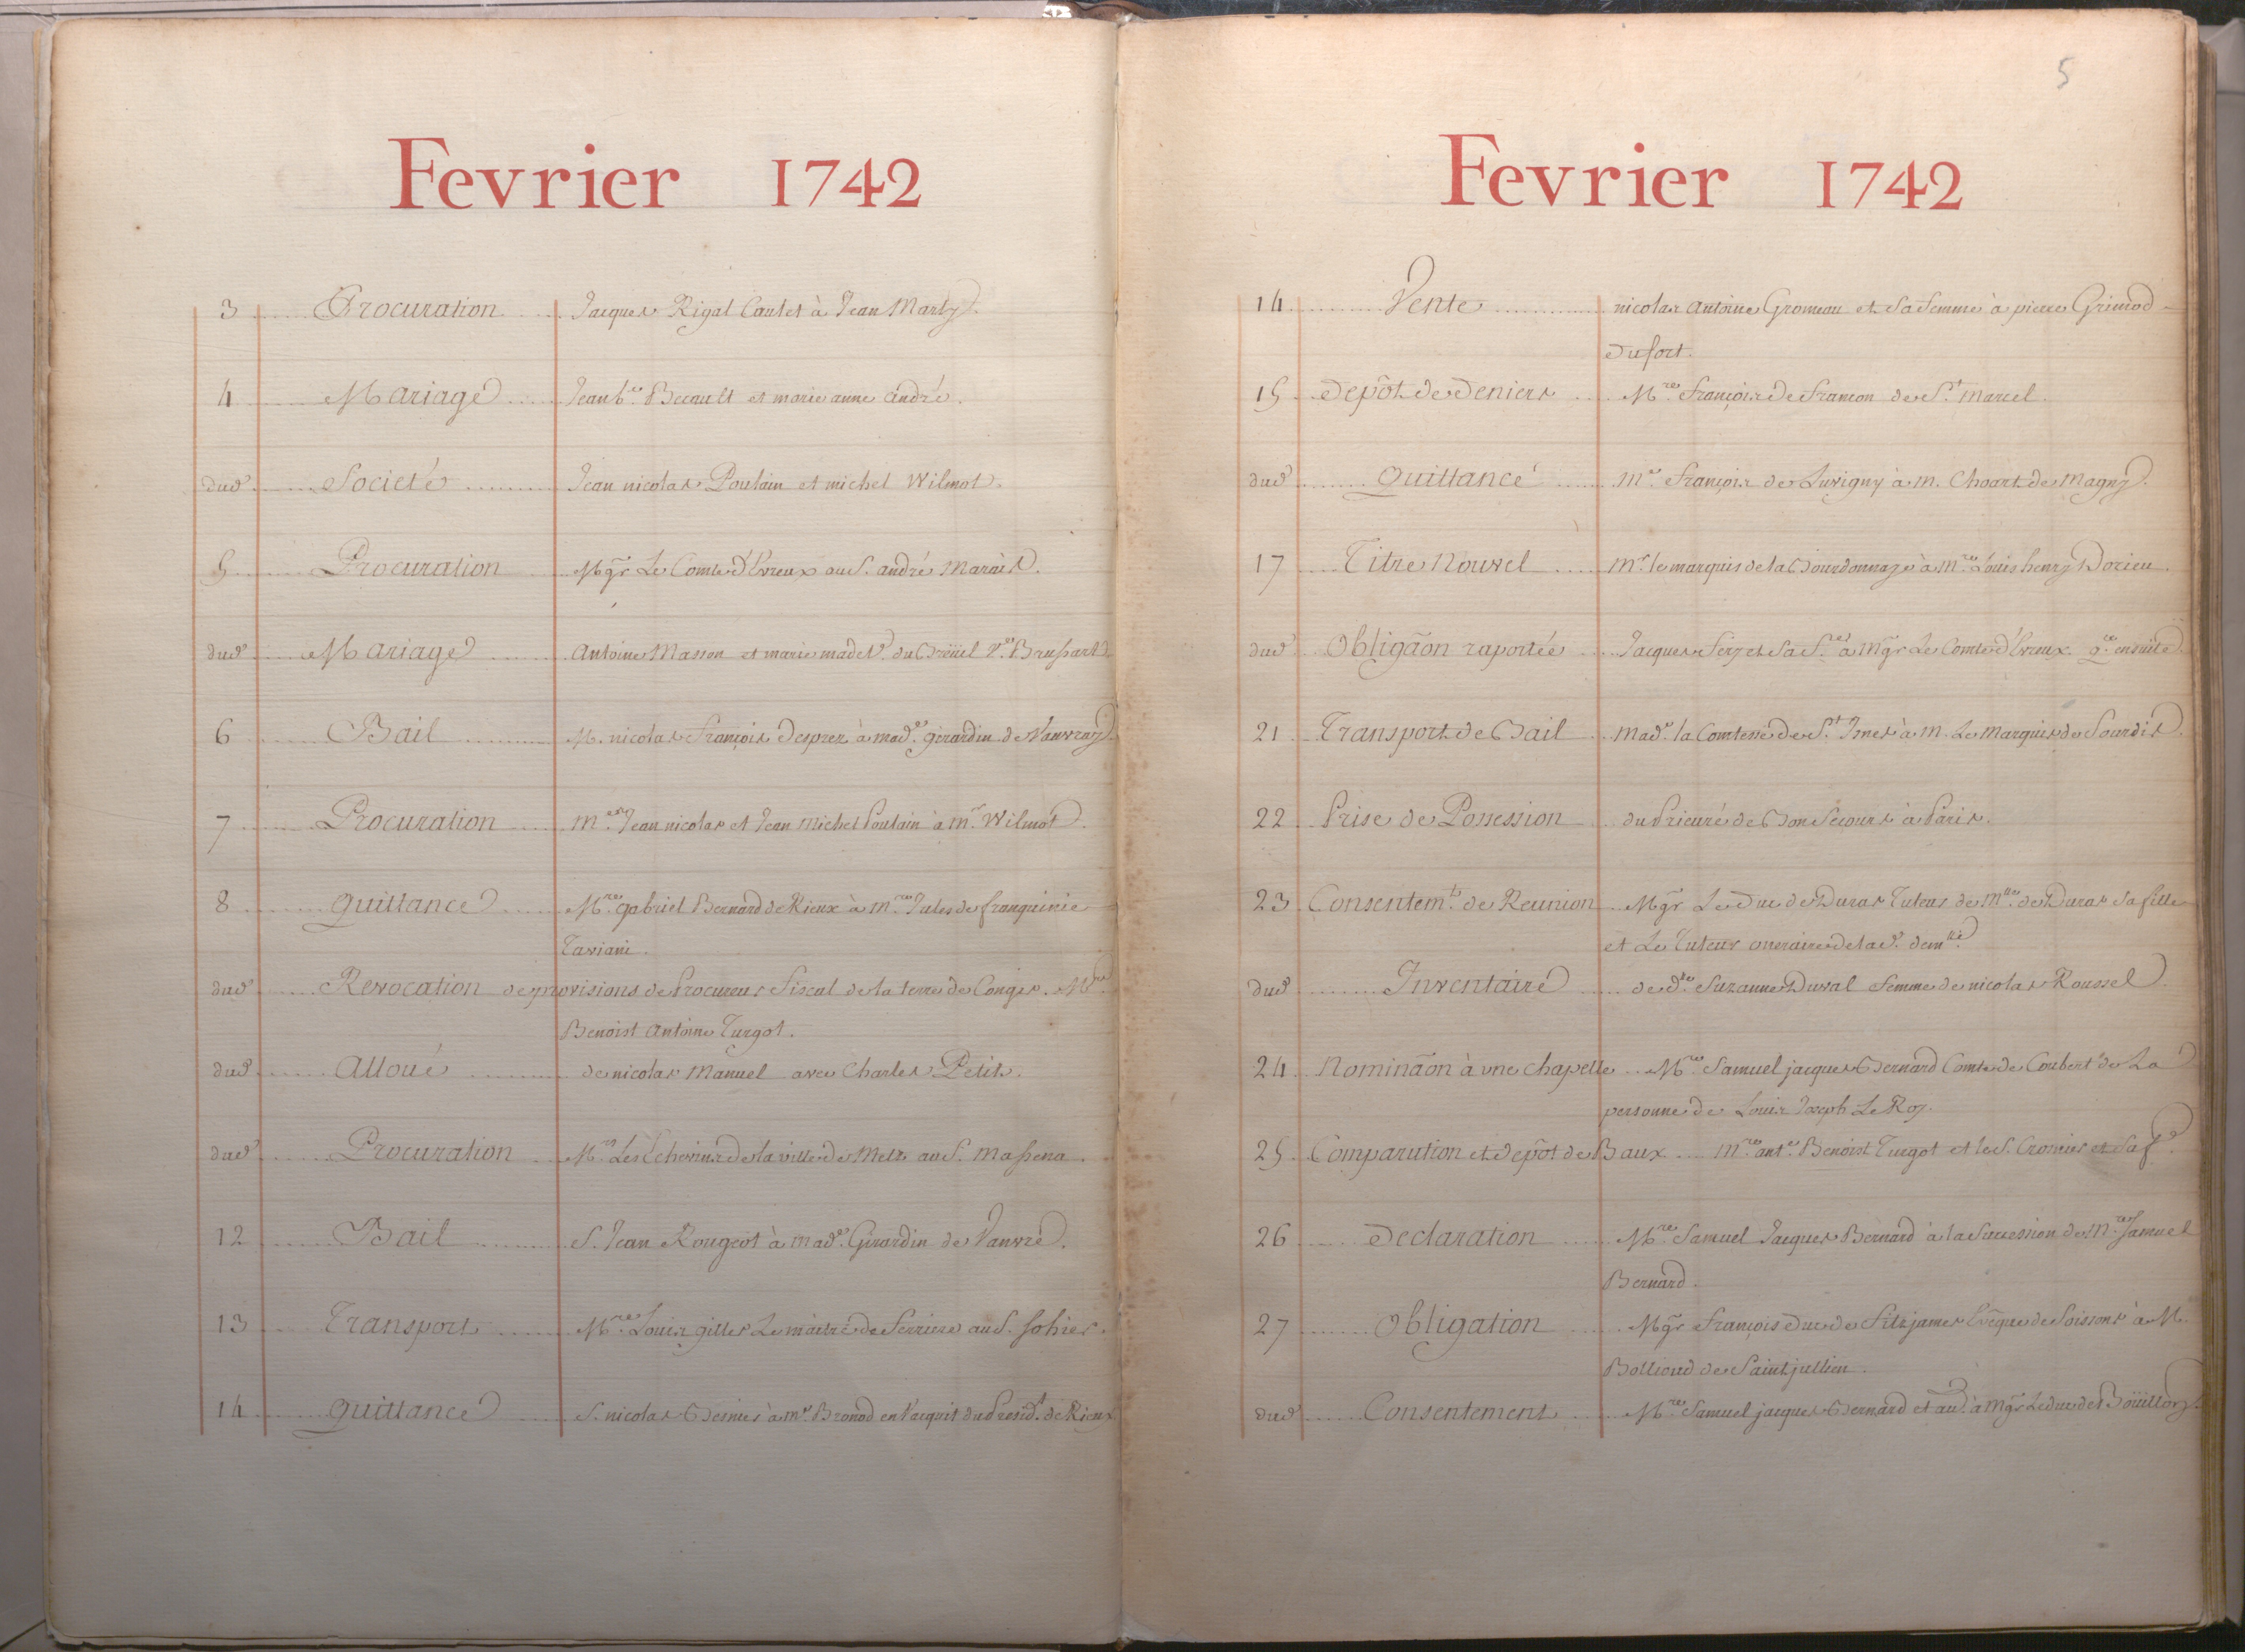 Fevrier 1742
3 Procuration Jacques Rigal Cantet à Jean Marty.
4 Mariage Jean b.te Becault et marie anne andré.
dud. Societé Jean nicolas Poulain et michel Wilmot.
5 Procuration Mgr Le Comte d'Evreux au S. andré Marais.
dud. Mariage Antoine Masson et marie madel.e du Breüil V.e
6 Bail M. nicolas François Desprez à mad.e girardin de Vanvray.
7 Procuration m.es Jean nicolas et Jean Michel Poulain à m.r Wilmot.
8 quittance M.re gabriel Bernard de Rieux à m.re Jules de franquinie
Taviani.
dud. Revocation de provisions de Procureur Fiscal de la terre de Conges. M.re
Benoist Antoine Turgot.
dud. alloué de nicolas Manuel avec Charles Petit.
dud. Procuration M.rs Les Echevins de la ville de Metz au S. Massena.
12 Bail S. Jean Rougeot à mad.e Girardin de Vanvré.
13 Transport M.re Louis gilles Le maitre de Ferriere au S. Sohier.
14 quittance S. nicolas Besnier à m.e Bronod en l'acquit du Presid.t de Rieux
5
Fevrier 1742
14 Vente nicolas Antoine Gromeau et Sa femme à pierre Grimod
Dufort.
15 Depôt de Deniers M.re François de Francon de S.t Marcel.
dud. Quittance M.e François de Luvigny à m. Choart de Magny.
17 Titre Nouvel m.r le marquis de la Bourdonnaye à m.re Louis henry Dorieu.
dud. Obligãon raportée Jacques Fery et Sa f.e à Mgr Le Comte d'Evreux. q.ce ensuite.
21 Transport de Bail mad.e la Comtesse de S.t à m. Le Marquis de Sourdis.
22 Prise de Possession du Prieuré de Bon Secours à Paris.
23 Consentem.t de Reunion Mgr Le Duc de Duras Tuteur de M.lle de Duras Sa fille
et Le Tuteur oneraire de lad. dem.lle
dud. Inventaire de d.e Suzanne Duval femme de nicolas Roussel
24 Nominãon à une Chapelle M.re Samuel jacques Bernard Comte de Coubert de La
personne de Louis Joseph Le Roy.
25 Comparution et depôt de Baux m.re ant.e Benoist Turgot et le S. Cromier et Sa f.e
26 Declaration M.re Samuel Jacques Bernard à la Succession de M.re Samuel
Bernard.
27 Obligation Mgr François Duc de Fitzjames Evêque de Soissons à M.
Bollioud de Saint jullien.
dud. Consentement M.re Samuel jacques Bernard et au.t à Mgr Le duc de Boüillon.